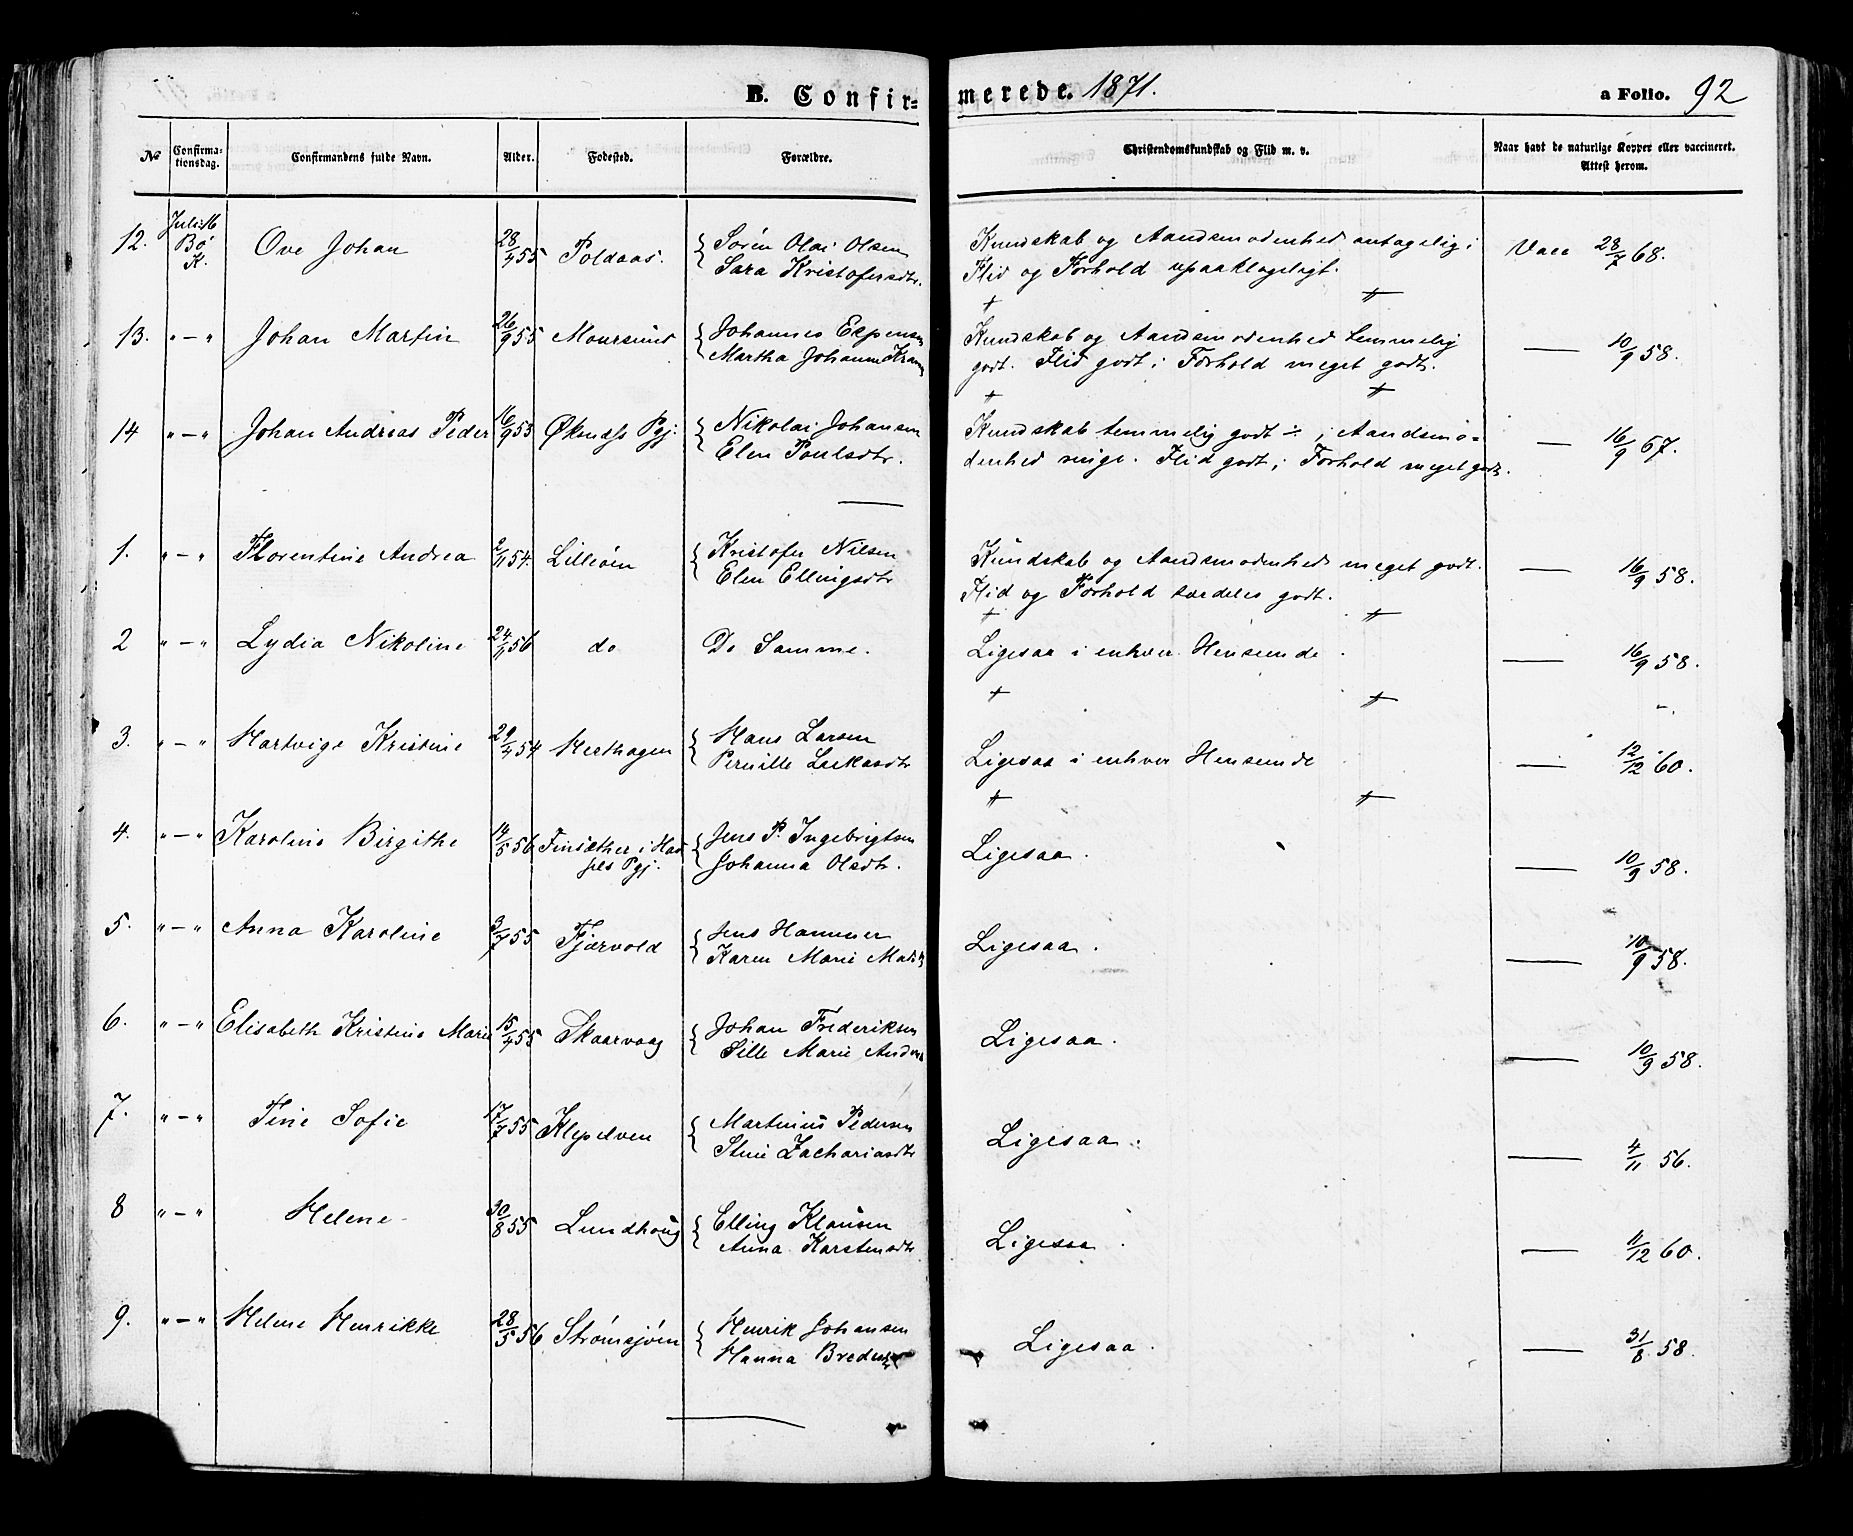 B. Confirmerede. 1871.
a Folio. 92
No Confirmationsdag. Confirmandens fulde Navn. Alder. Fødested. Forældre. Christendomskundskab og Flid m. v. Naar havt de naturlige Kopper eller vaccineret. Attest herom.
12. Juli 16 Bö K. Ove Johan 28/4 55 Poldaas. Sören Olai Olsen Kundskab og Aandsmodenhed antagelig; Vacc 28/7 68.
Sara Kristofersdtr. Flid og Forhold upaaklageligt.
13. " — " Johan Martin 26/9 55 Maursund Johannes Espensen Kundskab og Aandsmodenhed temmelig — 10/9 58.
Martha Johanna godt. Flid godt; Forhold meget godt.
14 " — " Johan Andreas Peder 16/9 53 Øksnæs Pgj. Nikolai Johansen Kundskab temmelig godt ÷ ; Aandsmo= — 16/9 67.
Elen Poulsdtr. denhed ringe. Flid godt; Forhold meget godt.
1. " — " Florentine Andrea 2/11 54. Lilleöen Kristofer Nilsen Kundskab og Aandsmodenhed meget godt. — 16/9 58.
Elen Ellingsdtr Flid og Forhold særdeles godt.
2 " — " Lydia Nikoline 24/11 56 do De Samme. Ligesaa i enhver Henseende — 16/9 58.
3. " — " Hartvige Kristine 29/4 54 Mæhagen Hans Larsen Ligesaa i enhver Henseende — 12/12 60.
Pernille
4. " — " Karoline Birgithe 14/5 56 Finsæther i Had Jens P. Ingebrigtsen Ligesaa. — 10/9 58.
sels Pgj. Johanna Olsdtr.
5. " — " Anna Karoline 3/7 55 Fjærvold Jens Hammer Ligesaa. — 10/9 58.
Karen Marie Mads
6. " — " Elisabeth Kristine Marie 15/4 55 Skaarvaag Johan Frederiksen Ligesaa. — 10/9 58.
Sille Marie Anders
7. " — " Tine Sofie 17/7 55 Klepelven Martinus Pedersen Ligesaa. — 4/11 56.
Stine Zachariasdtr
8 " — " Helene 30/8 55 Lundhoug Elling Klausen Ligesaa. — 11/12 60.
Anna Karstensdtr
9. " — " Helene Henrikke 28/5 56 Strömsjöen Henrik Johansen Ligesaa. — 31/8 58.
Hanna